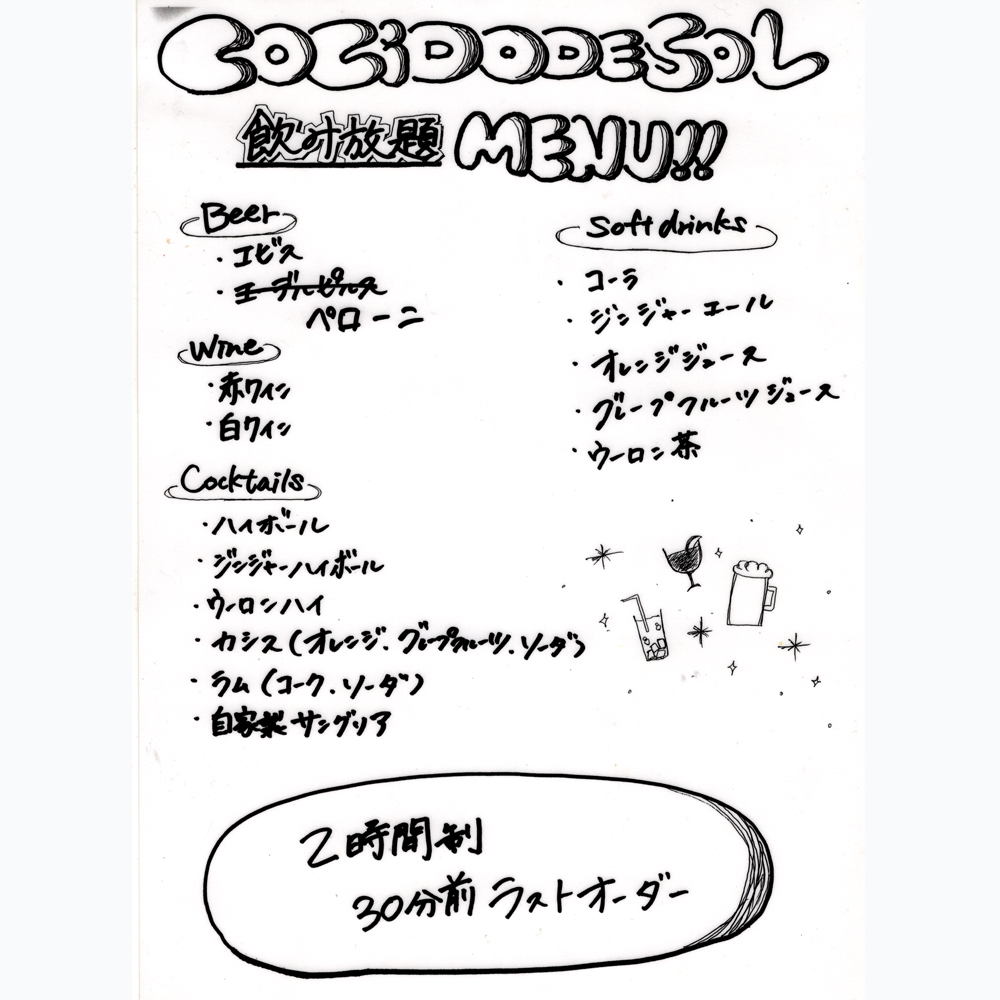 COCiDODESOL
飲み放題 MENU!!
Beer
・エビス
ペローニ
Wine
・赤ワイン
・白ワイン
Cocktails
・ハイボール
・ジンジャーハイボール
・ウーロンハイ
・カシス(オレンジ.グレープフルーツ.ソーダ)
・ラム(コーク.ソーダ)
・自家製サングリア
Soft drinks
・コーラ
・ジンジャーエール
・オレンジジュース
・グレープフルーツジュース
・ウーロン茶
2時間制
30分前ラストオーダー